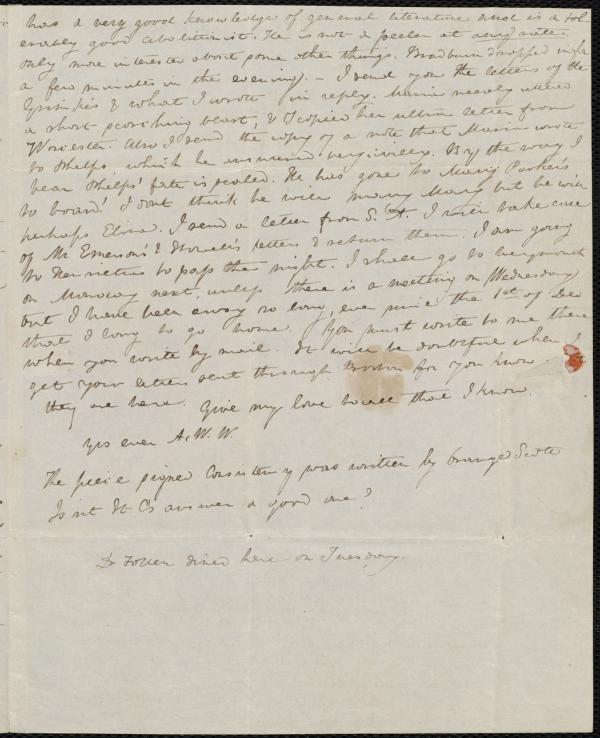 has a very good knowledge of general literature and is a tol-
erably good abolitionist. He is not a peeler at any rate,
only more interested about some other things. Bradburn dropped in for
a few minutes in the evening. - I send you the letters of the
Grimkes & what I wrote in reply. Maria merely uttered
a short scorching blast, & I copied her ultra letter from
Worcester. Also I send the copy of a note that Maria wrote
to Phelps, which he answered very civilly. By the way I
hear Phelps' fate is sealed. He has gone to Mary Parker's
to board! I dont think he will marry Mary but he will
perhaps Eliza. I send a letter from S. A. I will take care
of Mr Emerson's & letters & return them. I am going
to to pass the night. I shall go to Weymouth
on Monday next, unless there is a meeting on Wednesday
but I have been away so long, ever since the 1st of Dec
that I long to go home. You must write to me there
when you write by mail. It will be doubtful when I
get your letters sent through Boston for you know
they are here. Give my love to all that I know.
Yrs ever A. W. W.
The piece signed Consistency was written by Orange Scott
Isnt St Cs answer a good one?
Dr Follen dined here on Tuesday.